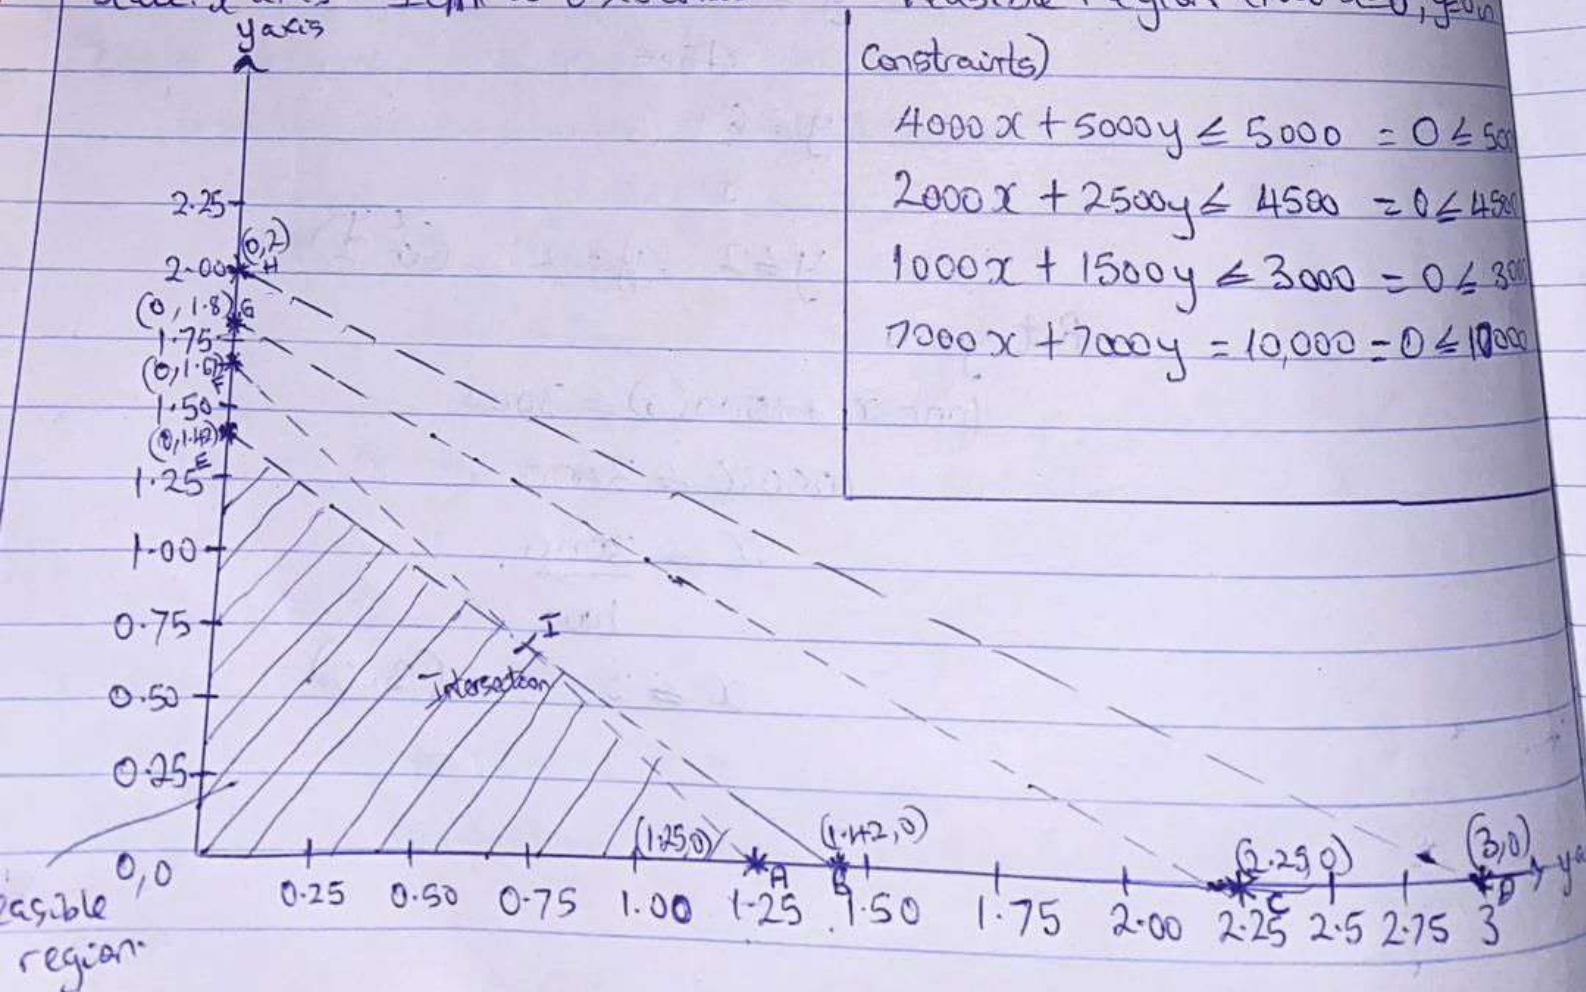 y axis
Constraints)
4000x + 5000y ≤ 5000 = 0 ≤ 500
2000x + 2500y ≤ 4500 = 0 ≤ 4500
1000x + 1500y ≤ 3000 = 0 ≤ 300
7000x + 7000y = 10,000 = 0 ≤ 10000
2.25
(0,2)
2.00 H
(0, 1.8) G
1.75
(0, 1.67)
F
1.50
(0,1.42)
E
1.25
1.00
0.75
I
Intersection
0.50
0.25
(1.25,0)
(1.42,0)
(2.25,0)
(3,0)
0,0
A
B
C
D
0.25 0.50 0.75 1.00 1.25 1.50 1.75 2.00 2.25 2.5 2.75 3
easible
region.